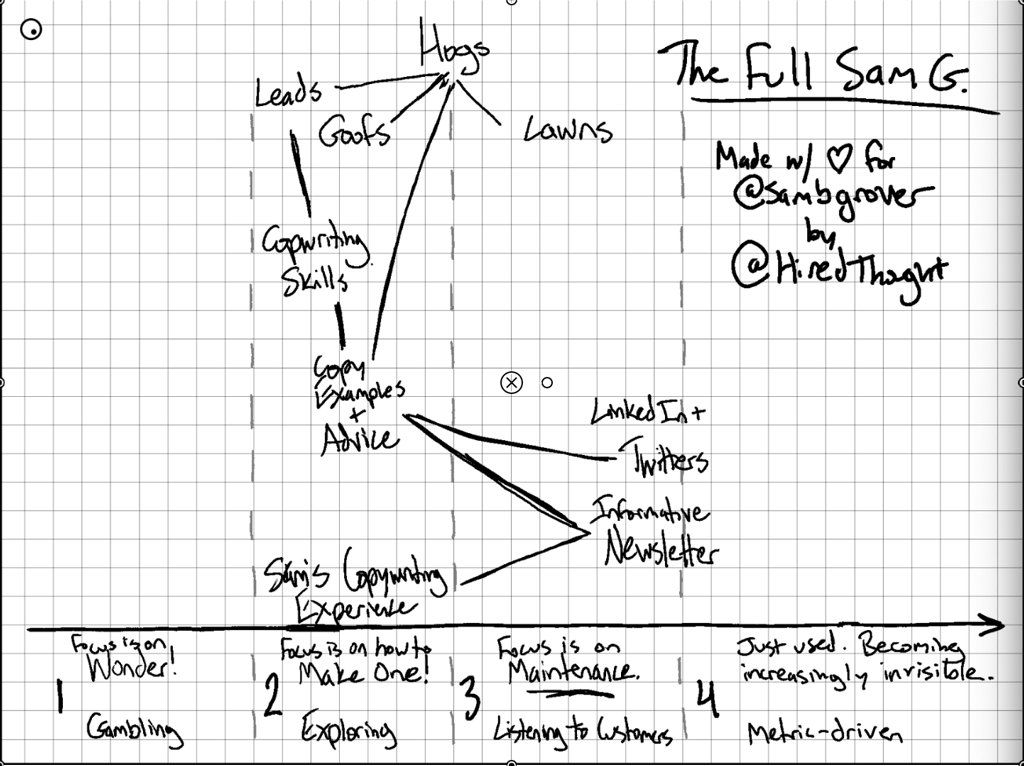 The Full Sam G.
Made w/ ♡ for
@Sambgrover
by
@HiredThought
Hogs
Leads
Goofs
Lawns
Copwriting
Skills
Copy
Examples
+
Advice
LinkedIn +
Twitters
Informative
Newsletter
Sam's Copywriting
Experience
1
Focus is on
Wonder!
Gambling
2
Focus is on how to
Make One!
Exploring
3
Focus is on
Maintenance.
Listening to Customers
4
Just used. Becoming
increasingly invisible.
Metric-driven